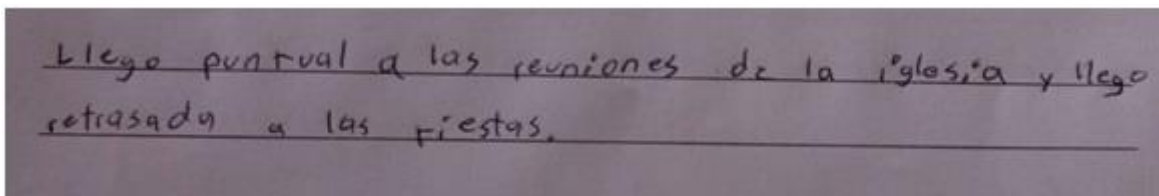 Llego puntual a las reuniones de la iglesia y llego
retrasada a las fiestas.